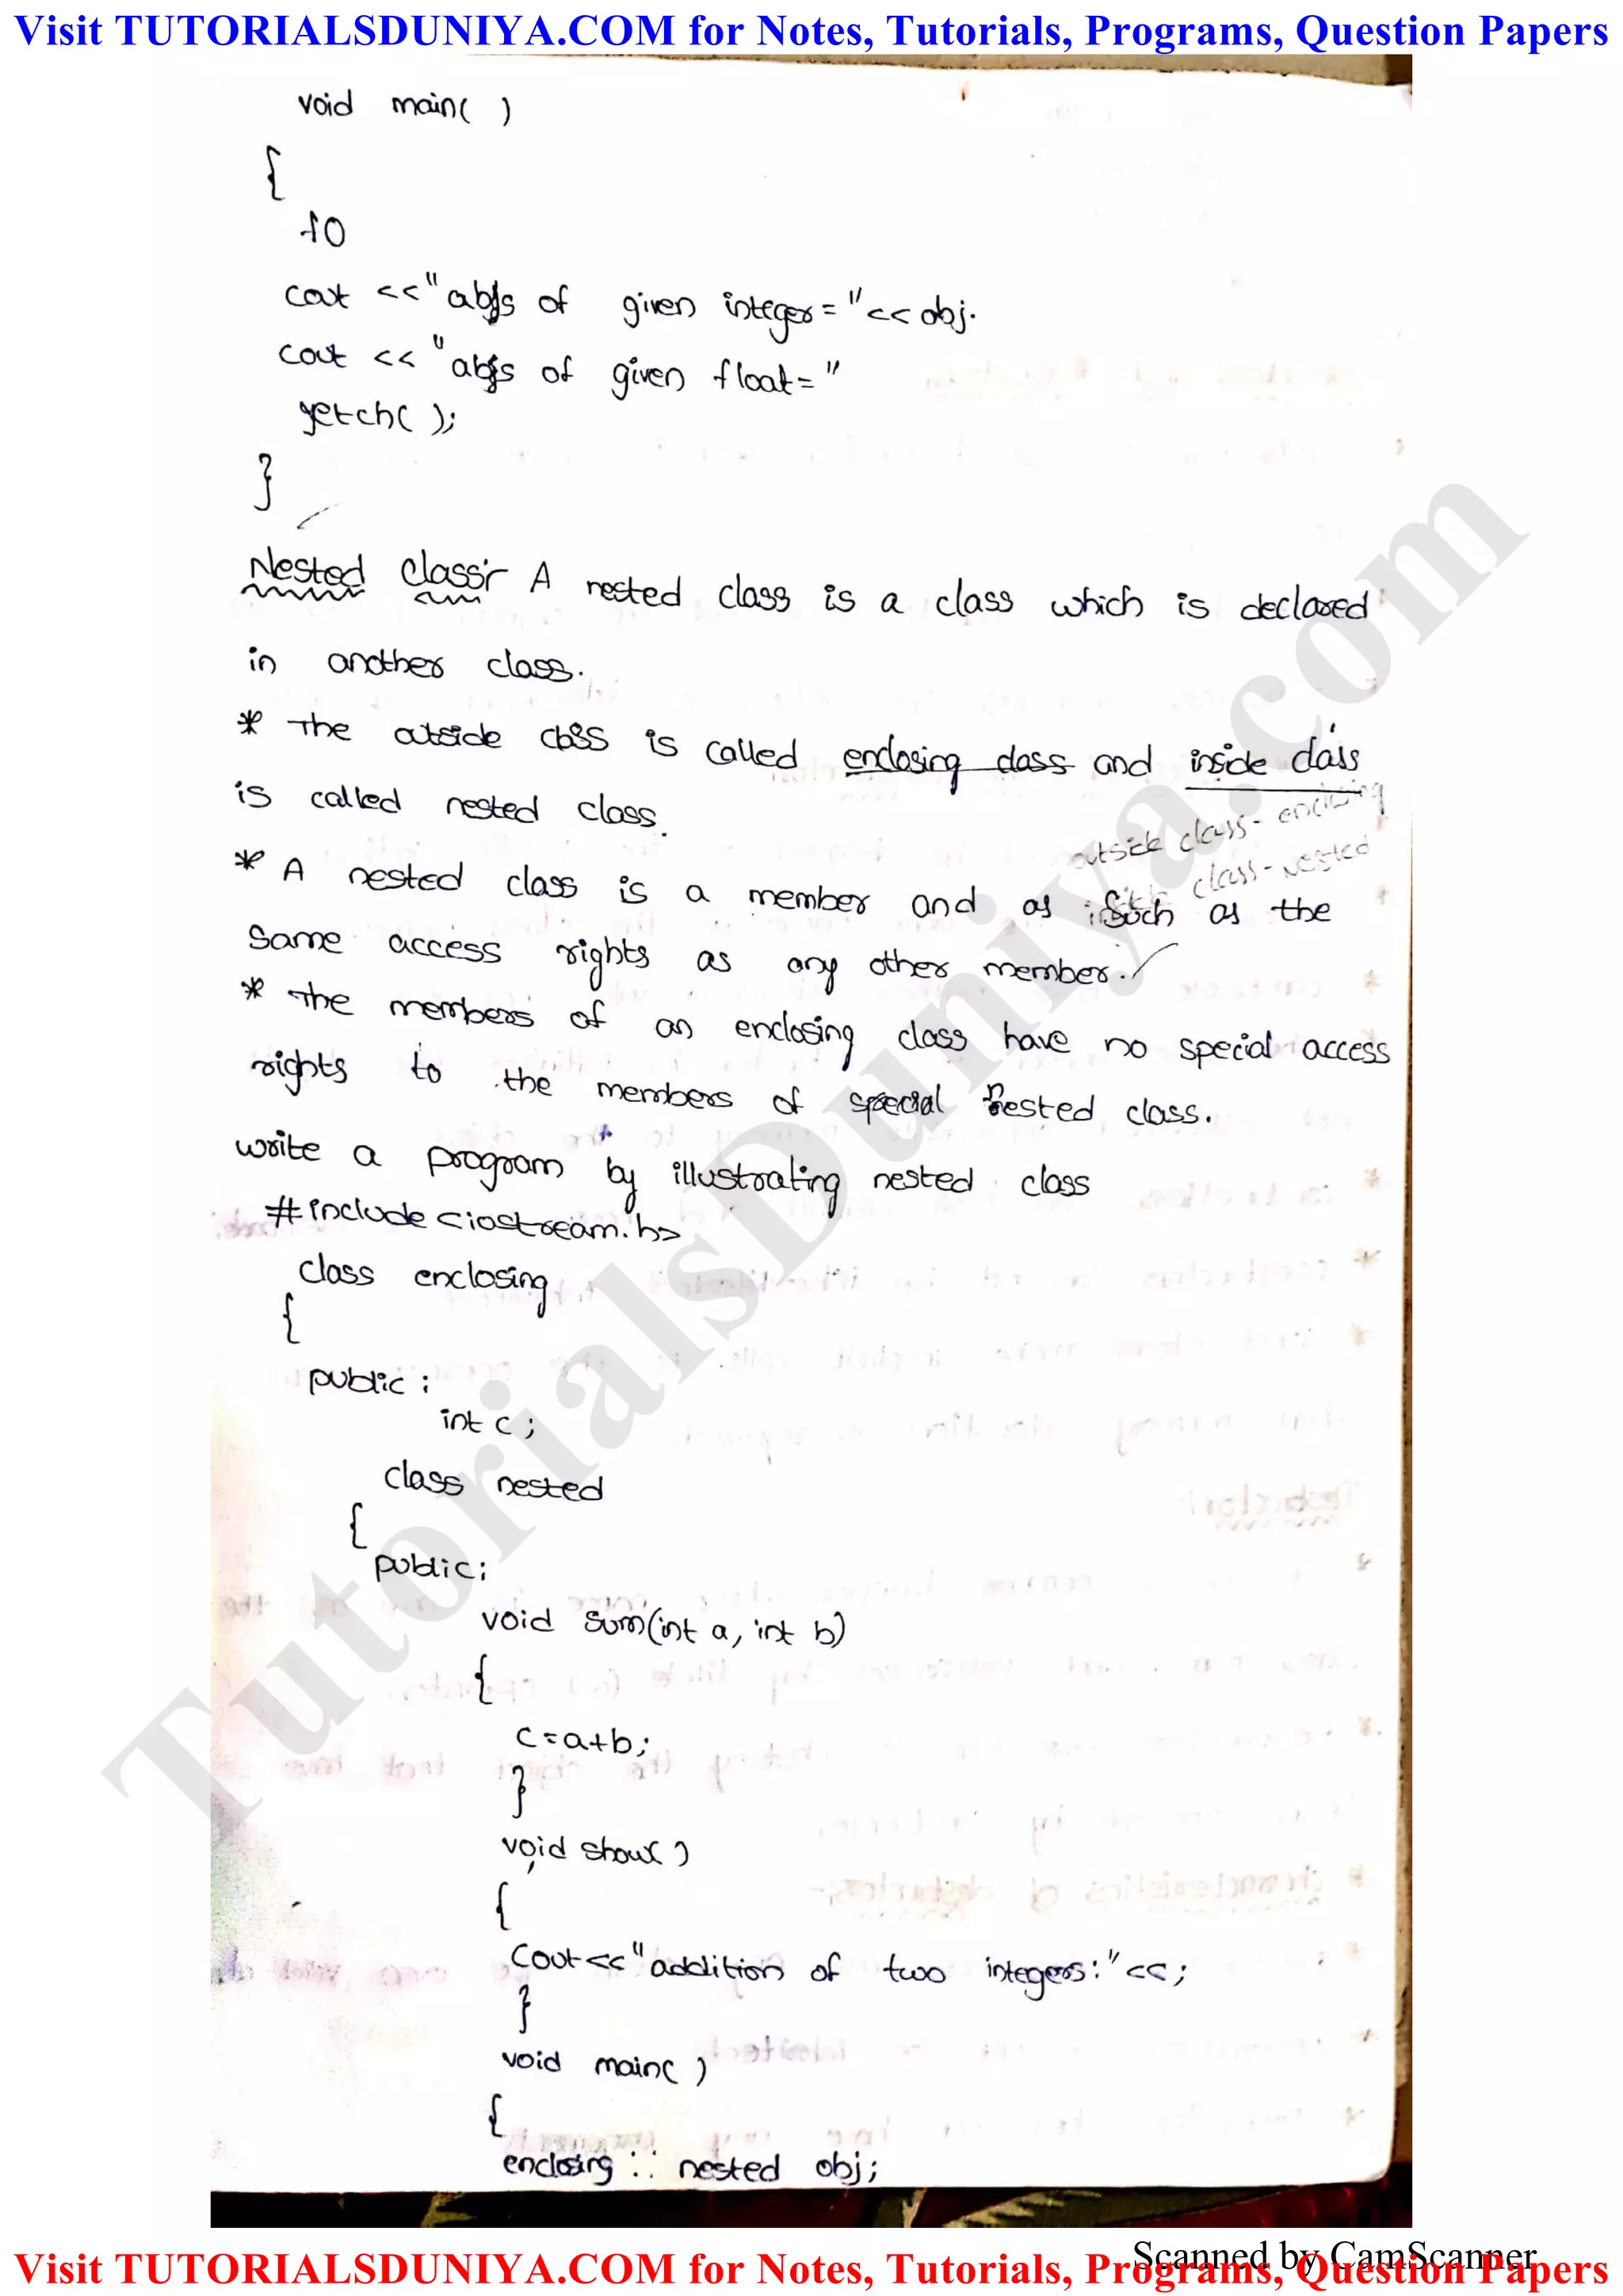 Visit TUTORIALSDUNIYA.COM for Notes, Tutorials, Programs, Question Papers
void main( )
{
cout <<"abs of given integer="<<obj.
cout <<"abs of given float="
getch( );
}
Nested Class:- A nested class is a class which is declared
in another class.
* The outside class is called enclosing class and inside class
is called nested class.
outside class- enclosing
class-nested
* A nested class is a member and as such as the
same access rights as any other member.
* The members of an enclosing class have no special access
rights to the members of special nested class.
write a program by illustrating nested class
#include<iostream.h>
class enclosing
{
public:
int c;
class nested
{
public:
void sum(int a, int b)
{
c=a+b;
}
void show( )
{
cout<<"addition of two integers:"<<;
}
void main( )
{
enclosing :: nested obj;
TutorialsDuniya.com
Scanned by CamScanner
Visit TUTORIALSDUNIYA.COM for Notes, Tutorials, Programs, Question Papers